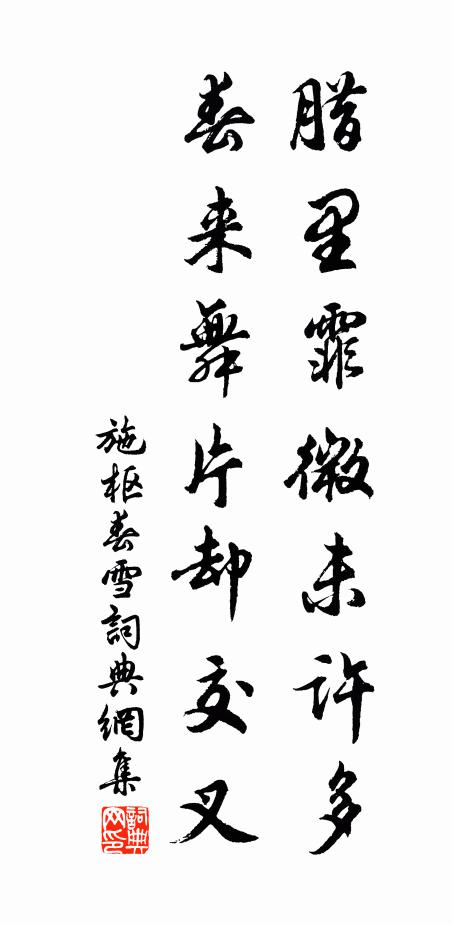 腊里霏微未许多
春来舞片却交叉
施枢春雪詞典網集
詞典网印